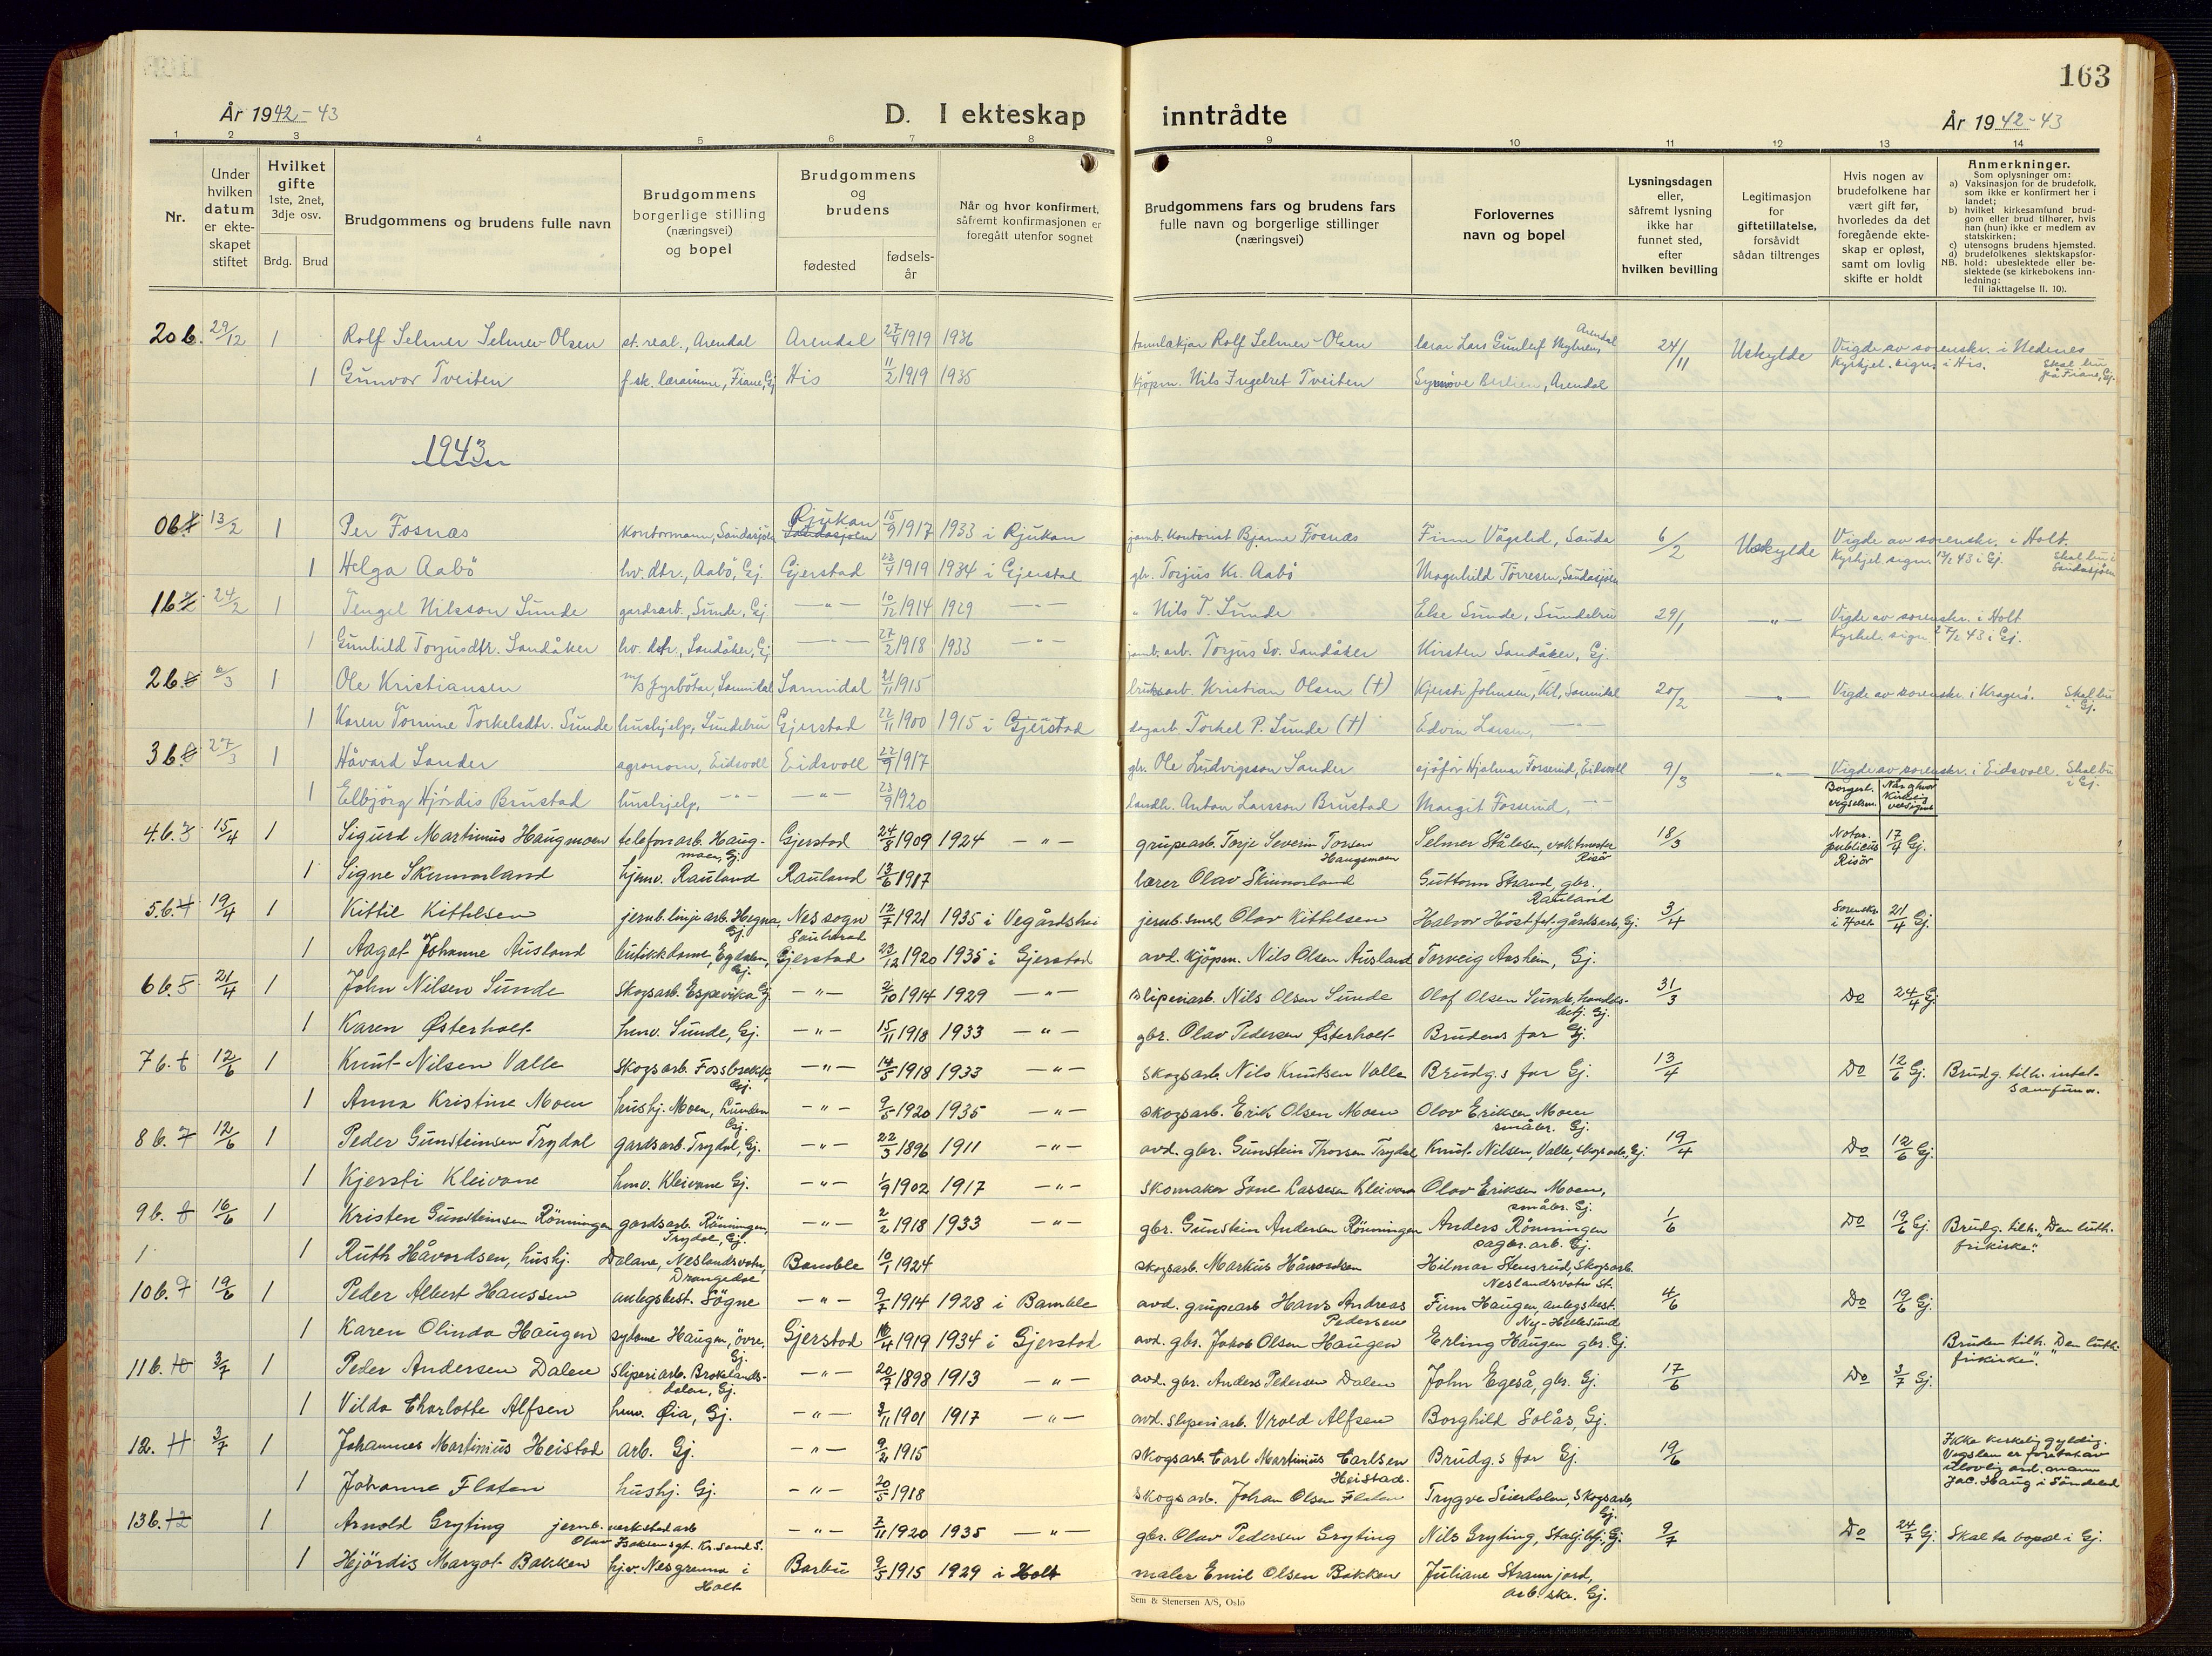 163
År 1942-43
D. I ekteskap inntrådte
År 1942-43
1 2 3 4 5 6 7 8 9 10 11 12 13 14
Nr.
Under hvilken datum er ekteskapet stiftet
Hvilket gifte 1ste, 2net, 3dje osv.
Brdg. Brud
Brudgommens og brudens fulle navn
Brudgommens borgerlige stilling (næringsvei) og bopel
Brudgommens og brudens
fødested
fødselsår
Når og hvor konfirmert, såfremt konfirmasjonen er foregått utenfor sognet
Brudgommens fars og brudens fars fulle navn og borgerlige stillinger (næringsvei)
Forlovernes navn og bopel
Lysningsdagen eller, såfremt lysning ikke har funnet sted, efter hvilken bevilling
Legitimasjon for giftetillatelse, forsåvidt sådan tiltrenges
Hvis nogen av brudefolkene har vært gift før, hvorledes da det foregående ekteskap er opløst, samt om lovlig skifte er holdt
Anmerkninger.
Som oplysninger om:
a) Vaksinasjon for de brudefolk, som ikke er konfirmert her i landet;
b) hvilket kirkesamfund brudgom eller brud tilhører, hvis han (hun) ikke er medlem av statskirken;
c) utensogns brudens hjemsted.
d) brudefolkenes slektskapsforhold: ubeslektede eller beslektede (se kirkebokens innledning:
NB.
Til iakttagelse II. 10).
20 b. 29/12 1 Rolf Selmer Selmer-Olsen st. real., Arendal Arendal 27/4 1919 1936 tannlækjar Rolf Selmer-Olsen lærar Lars Gunleif Arendal 24/11 Uskylde Vigde av sorenskr. i Nedenes
1 Gunvor Tveiten f.sk. lærarinne, Fiane, Gj His 11/2 1919 1935 kjøpm. Nils Ingebret Tveiten Synnöve Arendal Kyrkjel. sign. i His. Skal bu på Fiane, Gj.
1943
0 b 13/2 1 Per Fosnæs Kontormann, Saudasjøen Rjukan 15/9 1917 1933 i Rjukan jamb. kontorist Bjarne Fosnæs Finn Vågslid, Sauda 6/2 Uskylde Vigde av sorenskr. i Holt.
1 Helga Aabö hv. dtr., Aabö, Gj. Gjerstad 23/4 1919 1934 i Gjerstad gbr. Torjus Kr. Aabö Magnhild Törresen, Saudasjöen Kyrkjel. sign. 13/2 43 i Gj. Skal bu i Saudasjöen
1 b 24/2 1 Tengel Nilsson Sunde gardsarb., Sunde, Gj —"— 10/12 1914 1929 —"— " Nils T. Sunde Else Sunde, Sundebru 29/1 —"— Vigde av sorenskr. i Holt
1 Gunhild Torjusdtr. Sandåker hv. dtr., Sandåker, Gj —"— 27/2 1918 1933 —"— jamb. arb. Torjus Sv. Sandåker Kirsten Sandåker, Gj. Kyrkel. sign. 27/2 43 i Gj.
2 b. 6/3 1 Ole Kristiansen m/s fyrbötar, Sannidal Sannidal 21/11 1915 bruksarb. Kristian Olsen (†) Kjersti Johnsen, Kil, Sannidal 20/2 —"— Vigde av sorenskr. i Kragerö. Skal bu i Gj.
1 Karen Tomine Torkelsdtr. Sunde hushjelp, Sundebru Gjerstad 22/11 1900 1915 i Gjerstad dagarb. Torkel P. Sunde (†) Edvin Larsen, —"—
3 b. 27/3 1 Håvard Sander agronom, Eidsvoll Eidsvoll 22/9 1917 gbr. Ole Ludvigsson Sander sjåför Hjalmar Fosserud, Eidsvoll 9/3 —"— Vigde av sorenskr. i Eidsvoll. Skal bu i Gj.
1 Elbjörg Hjördis Brustad hushjelp, —"— —"— 23/9 1920 landh. Anton Larsson Brustad Margit Fosserud, —"—
Borgerl. vigselsm. Når og hvor kirkelig velsignet
4. b. 3 15/4 1 Sigurd Martinius Haugmoen telefonarb. Haugmoen, Gj. Gjerstad 24/8 1909 1924 —"— grupearb. Torje Severin Torsen Haugmoen Selmer Stålesen, vaktmester Risör 18/3 Notar. publicus Risör 17/4 Gj.
1 Signe Skinnarland hjemv. Rauland Rauland 13/6 1917 lærer Olav Skinnarland Guttorm Strand, gbr., Rauland
5. b. 4 19/4 1 Kittil Kittilsen jernb. linjearb. Hegna, Gj. Nes sogn Sauherad 12/7 1921 1935 i Vegårdshei jernb. smed Olav Kittilsen Halvor Höstfet, gårdsarb., Gj. 3/4 Sorenskr. i Holt 21/4 Gj.
1 Aagot Johanne Ausland butikkdame, Egdalen, Gj. Gjerstad 23/12 1920 1935 i Gjerstad avd. kjöpm. Nils Olsen Ausland Torveig Aasheim, Gj.
6 b. 5 21/4 1 John Nilsen Sunde skogsarb. Espevika Gj. —"— 2/10 1914 1929 —"— sliperiarb. Nils Olsen Sunde Olaf Olsen Sunde, handelsbetj. Gj. 31/3 Do 24/4 Gj
1 Karen Østerholt hmv. Sunde, Gj. —"— 15/11 1918 1933 —"— gbr. Olav Pedersen Østerholt Brudens far Gj.
7 b. 6 12/6 1 Knut Nilsen Valle skogsarb. Fossbrekke, Gj. —"— 14/5 1918 1933 —"— skogsarb. Nils Knutsen Valle Brudg.s far Gj. 13/4 Do 12/6 Gj. Brudg. tilh. intet samfunn.
1 Anna Kristine Moen hushj. Moen, Lunden Gj. —"— 9/5 1920 1935 —"— skogsarb. Erik Olsen Moen Olav Eriksen Moen småbr. Gj.
8 b. 7 12/6 1 Peder Gunsteinsen Trydal gardsarb. Trydal, Gj. —"— 22/3 1896 1911 —"— avd. gbr. Gunstein Thorsen Trydal Knut Nilsen, Valle, skogsarb., Gj. 19/4 Do 12/6 Gj.
1 Kjersti Kleivane hmv. Kleivane Gj. —"— 1/9 1902 1917 —"— skomaker Sone Lassesen Kleivane Olav Eriksen Moen, småbr. Gj.
9 b. 8 16/6 1 Kristen Gunsteinsen Rönningen gardsarb. Rönningen, Trydal, Gj. —"— 2/2 1918 1933 —"— gbr. Gunstein Andersen Rönningen Anders Rönningen sagbr. arb. Gj. 1/6 Do 19/6 Gj. Brudg. tilh. "Den luth. frikirke".
1 1 Ruth Håvordsen, hushj. Dalane, Neslandsvatn, Drangedal Bamble 10/1 1924 skogsarb. Markus Håvordsen Hilmar Stensrud, skogsarb. Neslandsvatn St.
10 b. 9 19/6 1 Peder Albert Hanssen anlegsbest. Sögne —"— 9/7 1914 1928 i Bamble avd. grupearb Hans Andreas Pedersen Finn Haugen, anlegsbest. Ny-Hellesund 4/6 Do 19/6 Gj.
1 Karen Olinda Haugen sydame Haugen, övre, Gj. Gjerstad 10/4 1919 1934 i Gjerstad avd. gbr. Jakob Olsen Haugen Erling Haugen gbr. Gj. Bruden tilh. "Den luth. frikirke".
11 b. 10 3/7 1 Peder Andersen Dalen sliperiarb. Broklandsdalen, Gj. —"— 20/7 1898 1913 —"— avd. gbr. Anders Pedersen Dalen John Egeså, gbr. Gj. 17/6 Do 3/7 Gj.
1 Vilda Charlotte Alfsen hmv. Øia, Gj. —"— 3/11 1901 1917 —"— avd. sliperiarb. Vrold Alfsen Borghild Solås, Gj.
12. 11 3/7 1 Johannes Martinius Heistad arb. Gj. —"— 9/2 1915 skogsarb Carl Martinius Carlsen Heistad. Brudg.s far Gj. 19/6 Ikke kirkelig gyldig. Vigslen er foretatt av ulovlig ord. mann Jac. Haug i Söndeled
1 Johanne Flaten hushj. Gj. —"— 20/5 1918 skogsarb. Johan Olsen Flaten Trygve Seierdalen, skogsarb, Gj.
13 b. 12 1 Arnold Gryting jernb. verkstedarb Olav Baksens gt. Kr.sand S. —"— 7/11 1920 1935 —"— gbr. Olav Pedersen Gryting Nils Gryting, Gj. 9/7 Do 24/7 Gj. Skal ta bopel i Gj.
1 Hjördis Margot Bakken hj.v. Nesgrenna i Holt Barbu 9/5 1915 1929 i Holt maler Emil Olsen Bakken Juliane Strannjord, arb. ske. Gj.
Sem & Stenersen A/S, Oslo